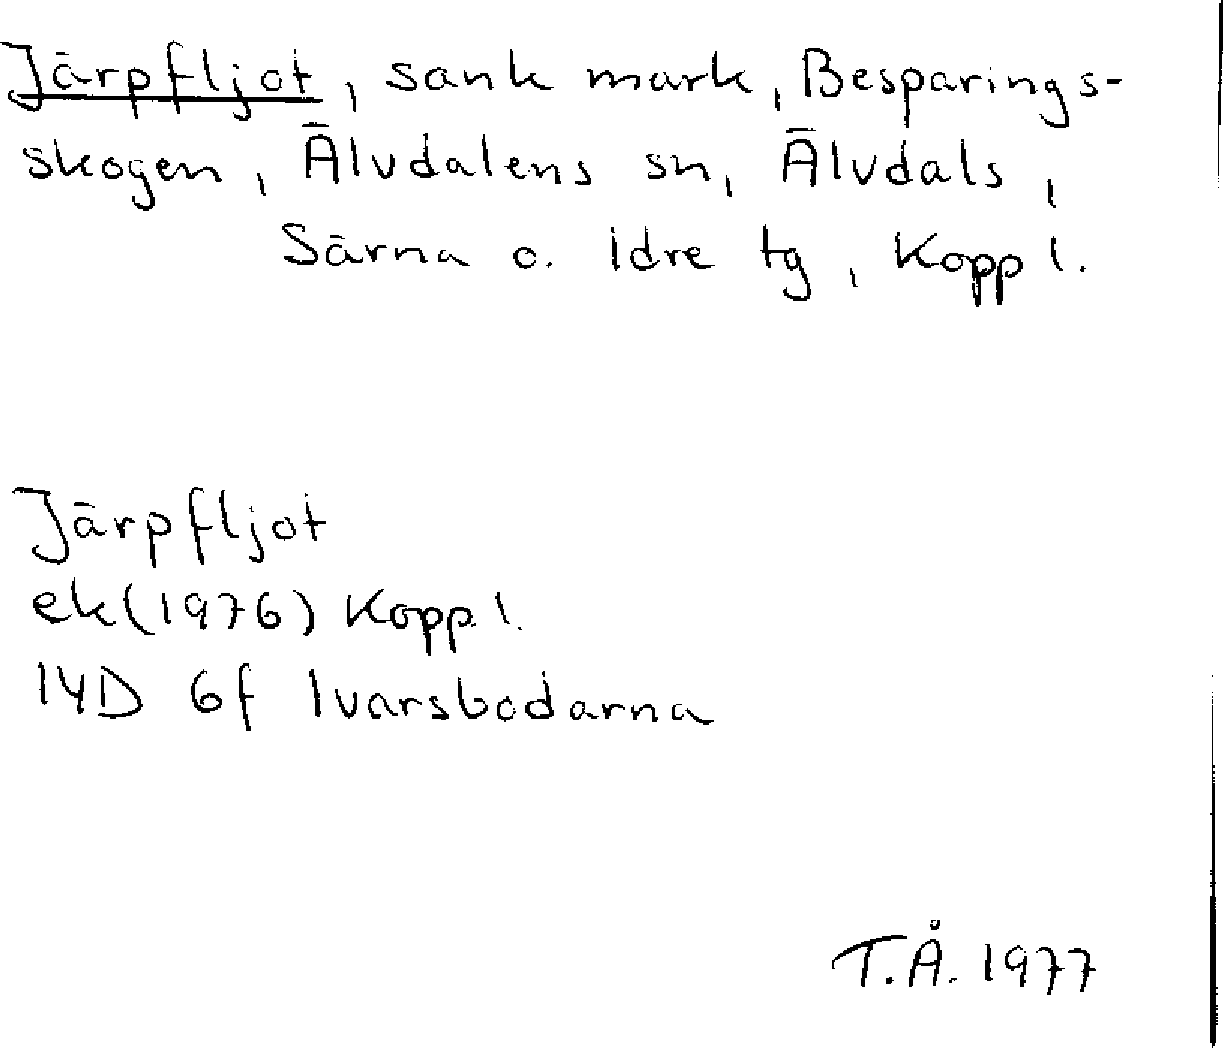 Järpfljot, sank mark, Besparings-
skogen, Älvdalens sn, Älvdals,
Särna o. Idre tg, Kopp l.
Järpfljot
ek(1976) Kopp. l.
14D 6f Ivarsbodarna
T.Å. 1977